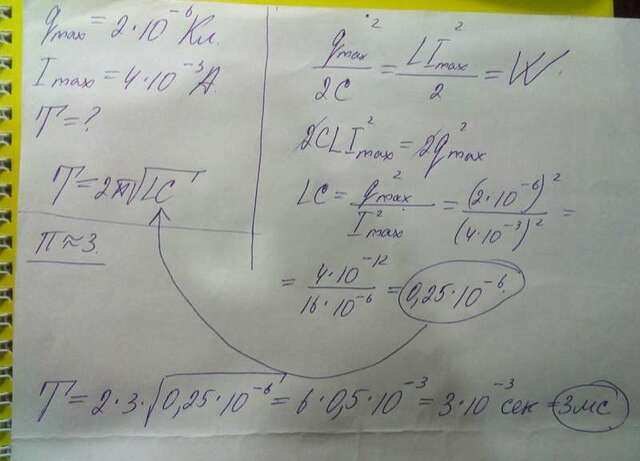 q_max = 2·10⁻⁶ Кл.
I_max = 4·10⁻³ А.
T = ?
T = 2π√LC
П ≈ 3.
q²_max / 2C = LI²_max / 2 = W.
2CLI²_max = 2q²_max
LC = q²_max / I²_max = (2·10⁻⁶)² / (4·10⁻³)² =
= 4·10⁻¹² / 16·10⁻⁶ = 0,25·10⁻⁶
T = 2·3·√0,25·10⁻⁶ = 6·0,5·10⁻³ = 3·10⁻³ сек = 3мс